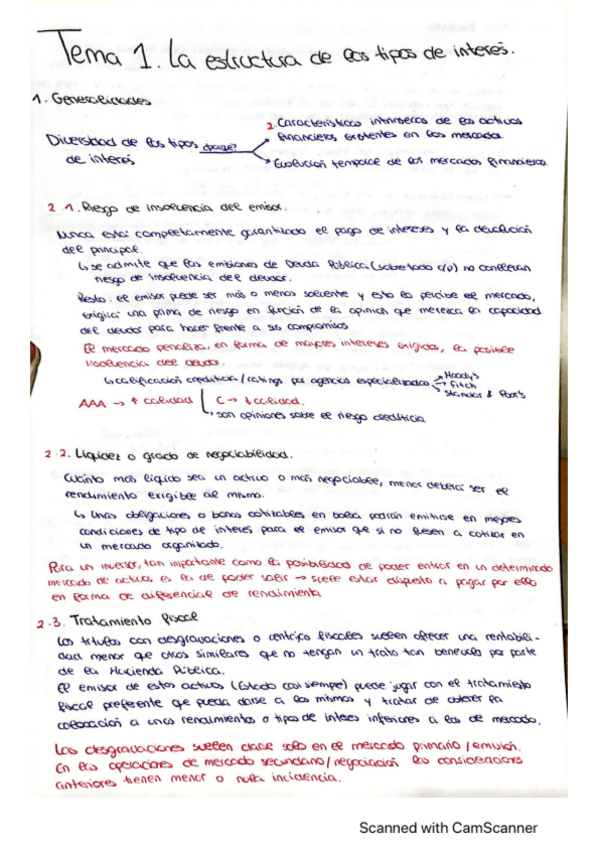 Tema 1. La estructura de los tipos de interés.
1. Generalidades
Diversidad de los tipos de interés ¿porqué?
2. Características intrínsecas de los activos
financieros existentes en los mercados.
Evolución temporal de los mercados financieros.
2.1. Riesgo de insolvencia del emisor.
Nunca está completamente garantizado el pago de intereses y la devolución
del principal.
↳ se admite que las emisiones de Deuda Pública (sobretodo c/p) no conllevan
riesgo de insolvencia del deudor.
Resto: el emisor puede ser más o menos solvente y esto lo percibe el mercado,
exigirá una prima de riesgo en función de la opinión que merezca la capacidad
del deudor para hacer frente a sus compromisos
El mercado penaliza, en forma de mayores intereses exigidos, la posible
insolvencia del deudor.
↳ calificación crediticia / ratings por agencias especializadas → Moody's
→ Fitch
→ Standar & Poor's
AAA → ↑ calidad C → ↓ calidad.
↳ son opiniones sobre el riesgo crediticio.
2.2. Liquidez o grado de negociabilidad.
Cuánto más líquido sea un activo o más negociable, menor deberá ser el
rendimiento exigible al mismo.
↳ Unas obligaciones o bonos cotizables en bolsa podrán emitirse en mejores
condiciones de tipo de interés para el emisor que si no fuesen a cotizar en
un mercado organizado.
Para un inversor, tan importante como la posibilidad de poder entrar en un determinado
mercado de activos es la de poder salir → suele estar dispuesto a pagar por ello
en forma de diferencial de rendimiento.
2.3. Tratamiento fiscal
Los títulos con desgravaciones o ventajas fiscales suelen ofrecer una rentabili-
dad menor que otros similares que no tengan un trato tan benévolo por parte
de la Hacienda Pública.
El emisor de estos activos (Estado casi siempre) puede jugar con el tratamiento
fiscal preferente que pueda darse a los mismos y tratar de obtener la
colocación a unos rendimientos o tipos de interes inferiores a los de mercado.
Las desgravaciones suelen darse solo en el mercado primario / emisión.
En las operaciones de mercado secundario / negociación las consideraciones
anteriores tienen menor o nula incidencia.
Scanned with CamScanner